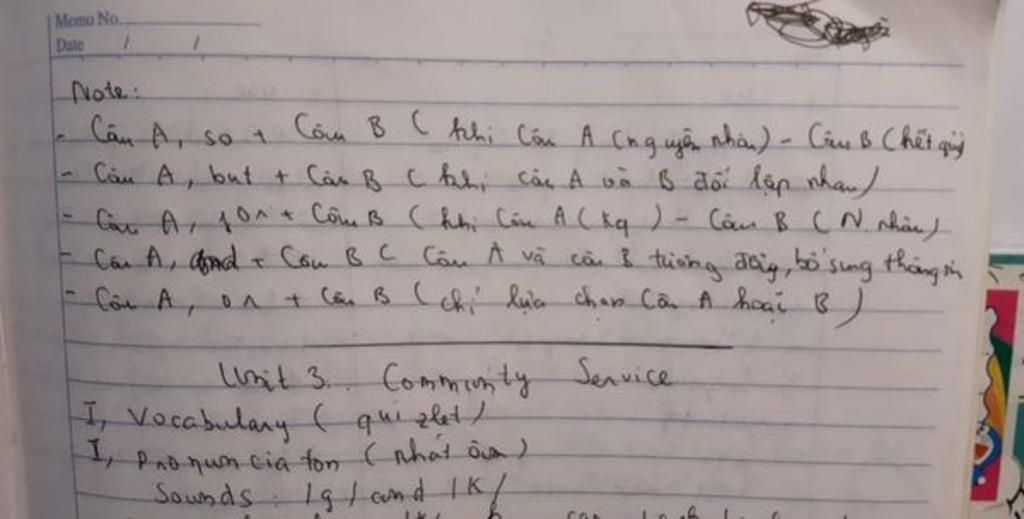 Memo No.
Date / /
Note:
- Câu A, so + Câu B ( khi Câu A (nguyên nhân) - Câu B (kết quả)
- Câu A, but + Câu B ( khi câu A và B đối lập nhau)
- Câu A, for + Câu B ( khi Câu A ( kq ) - Câu B ( N. nhân)
- Câu A, and + Câu B ( Câu A và câu B tương đồng, bổ sung thông tin
- Câu A, or + Câu B ( chỉ lựa chọn Câu A hoặc B )
Unit 3. Community Service
I, Vocabulary ( quizlet )
I, Pronunciaton ( phát âm )
Sounds : /g/ and /k/